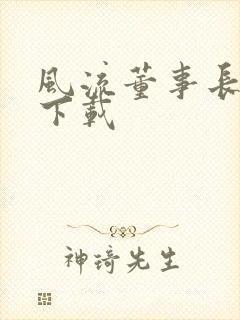 風流董事長
下載
神琦先生